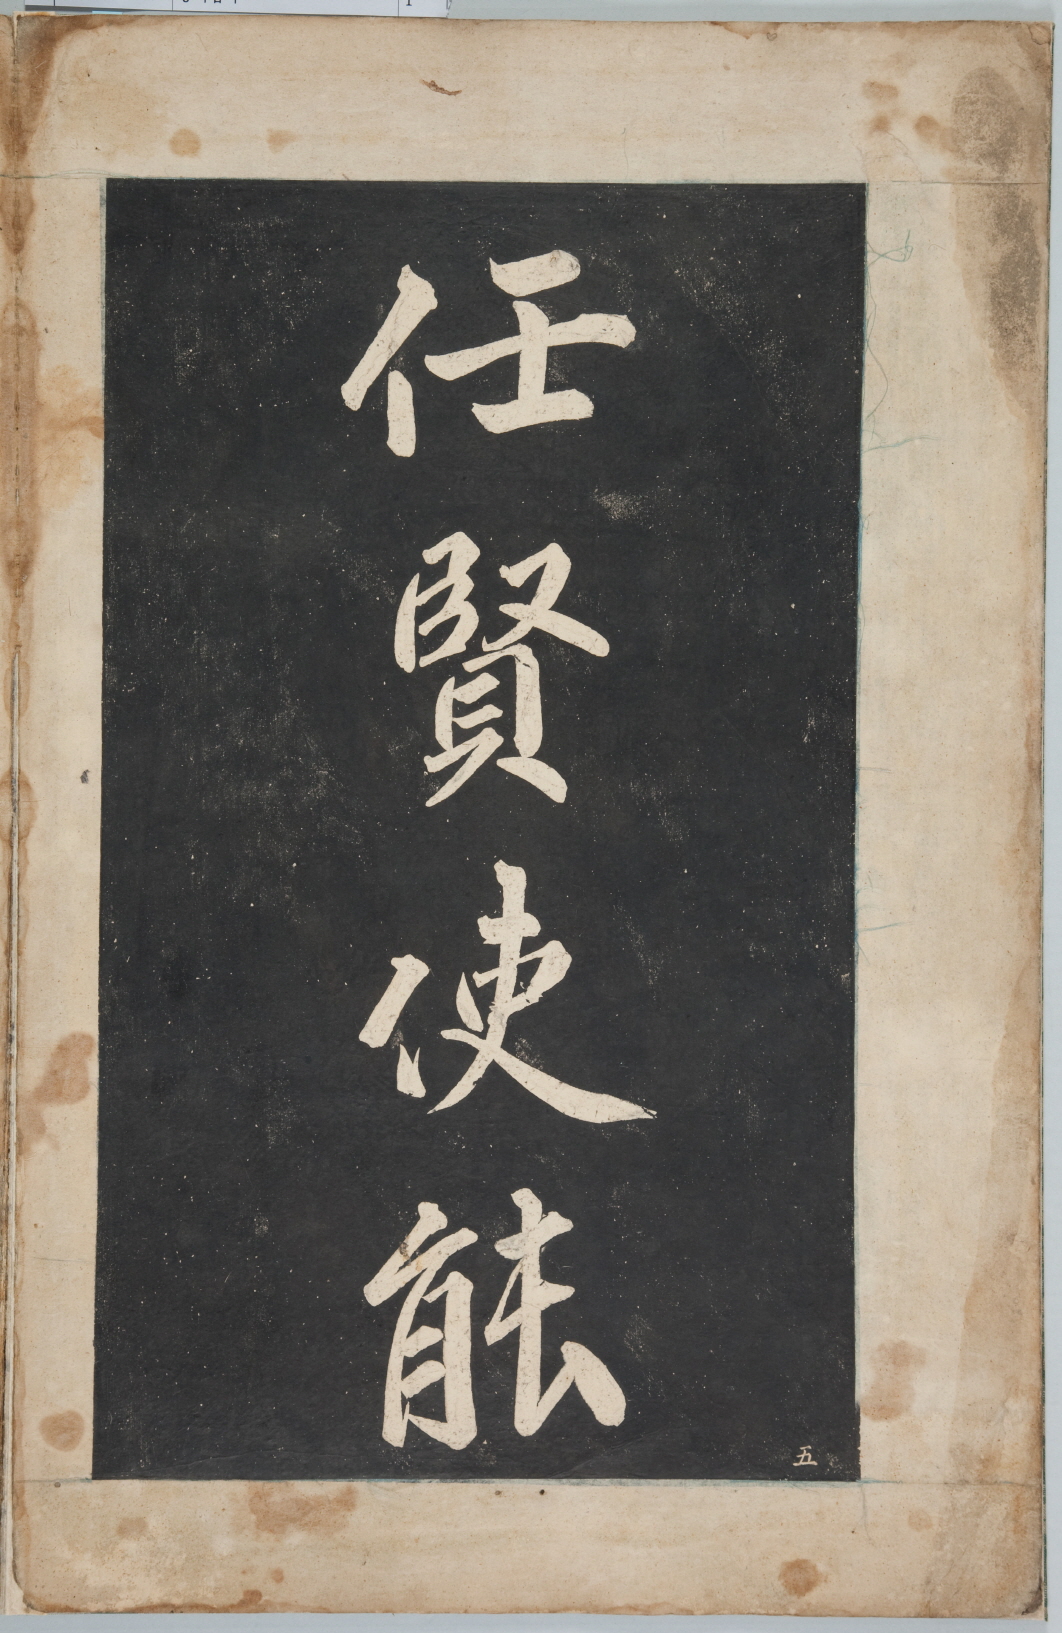 任賢使能
五